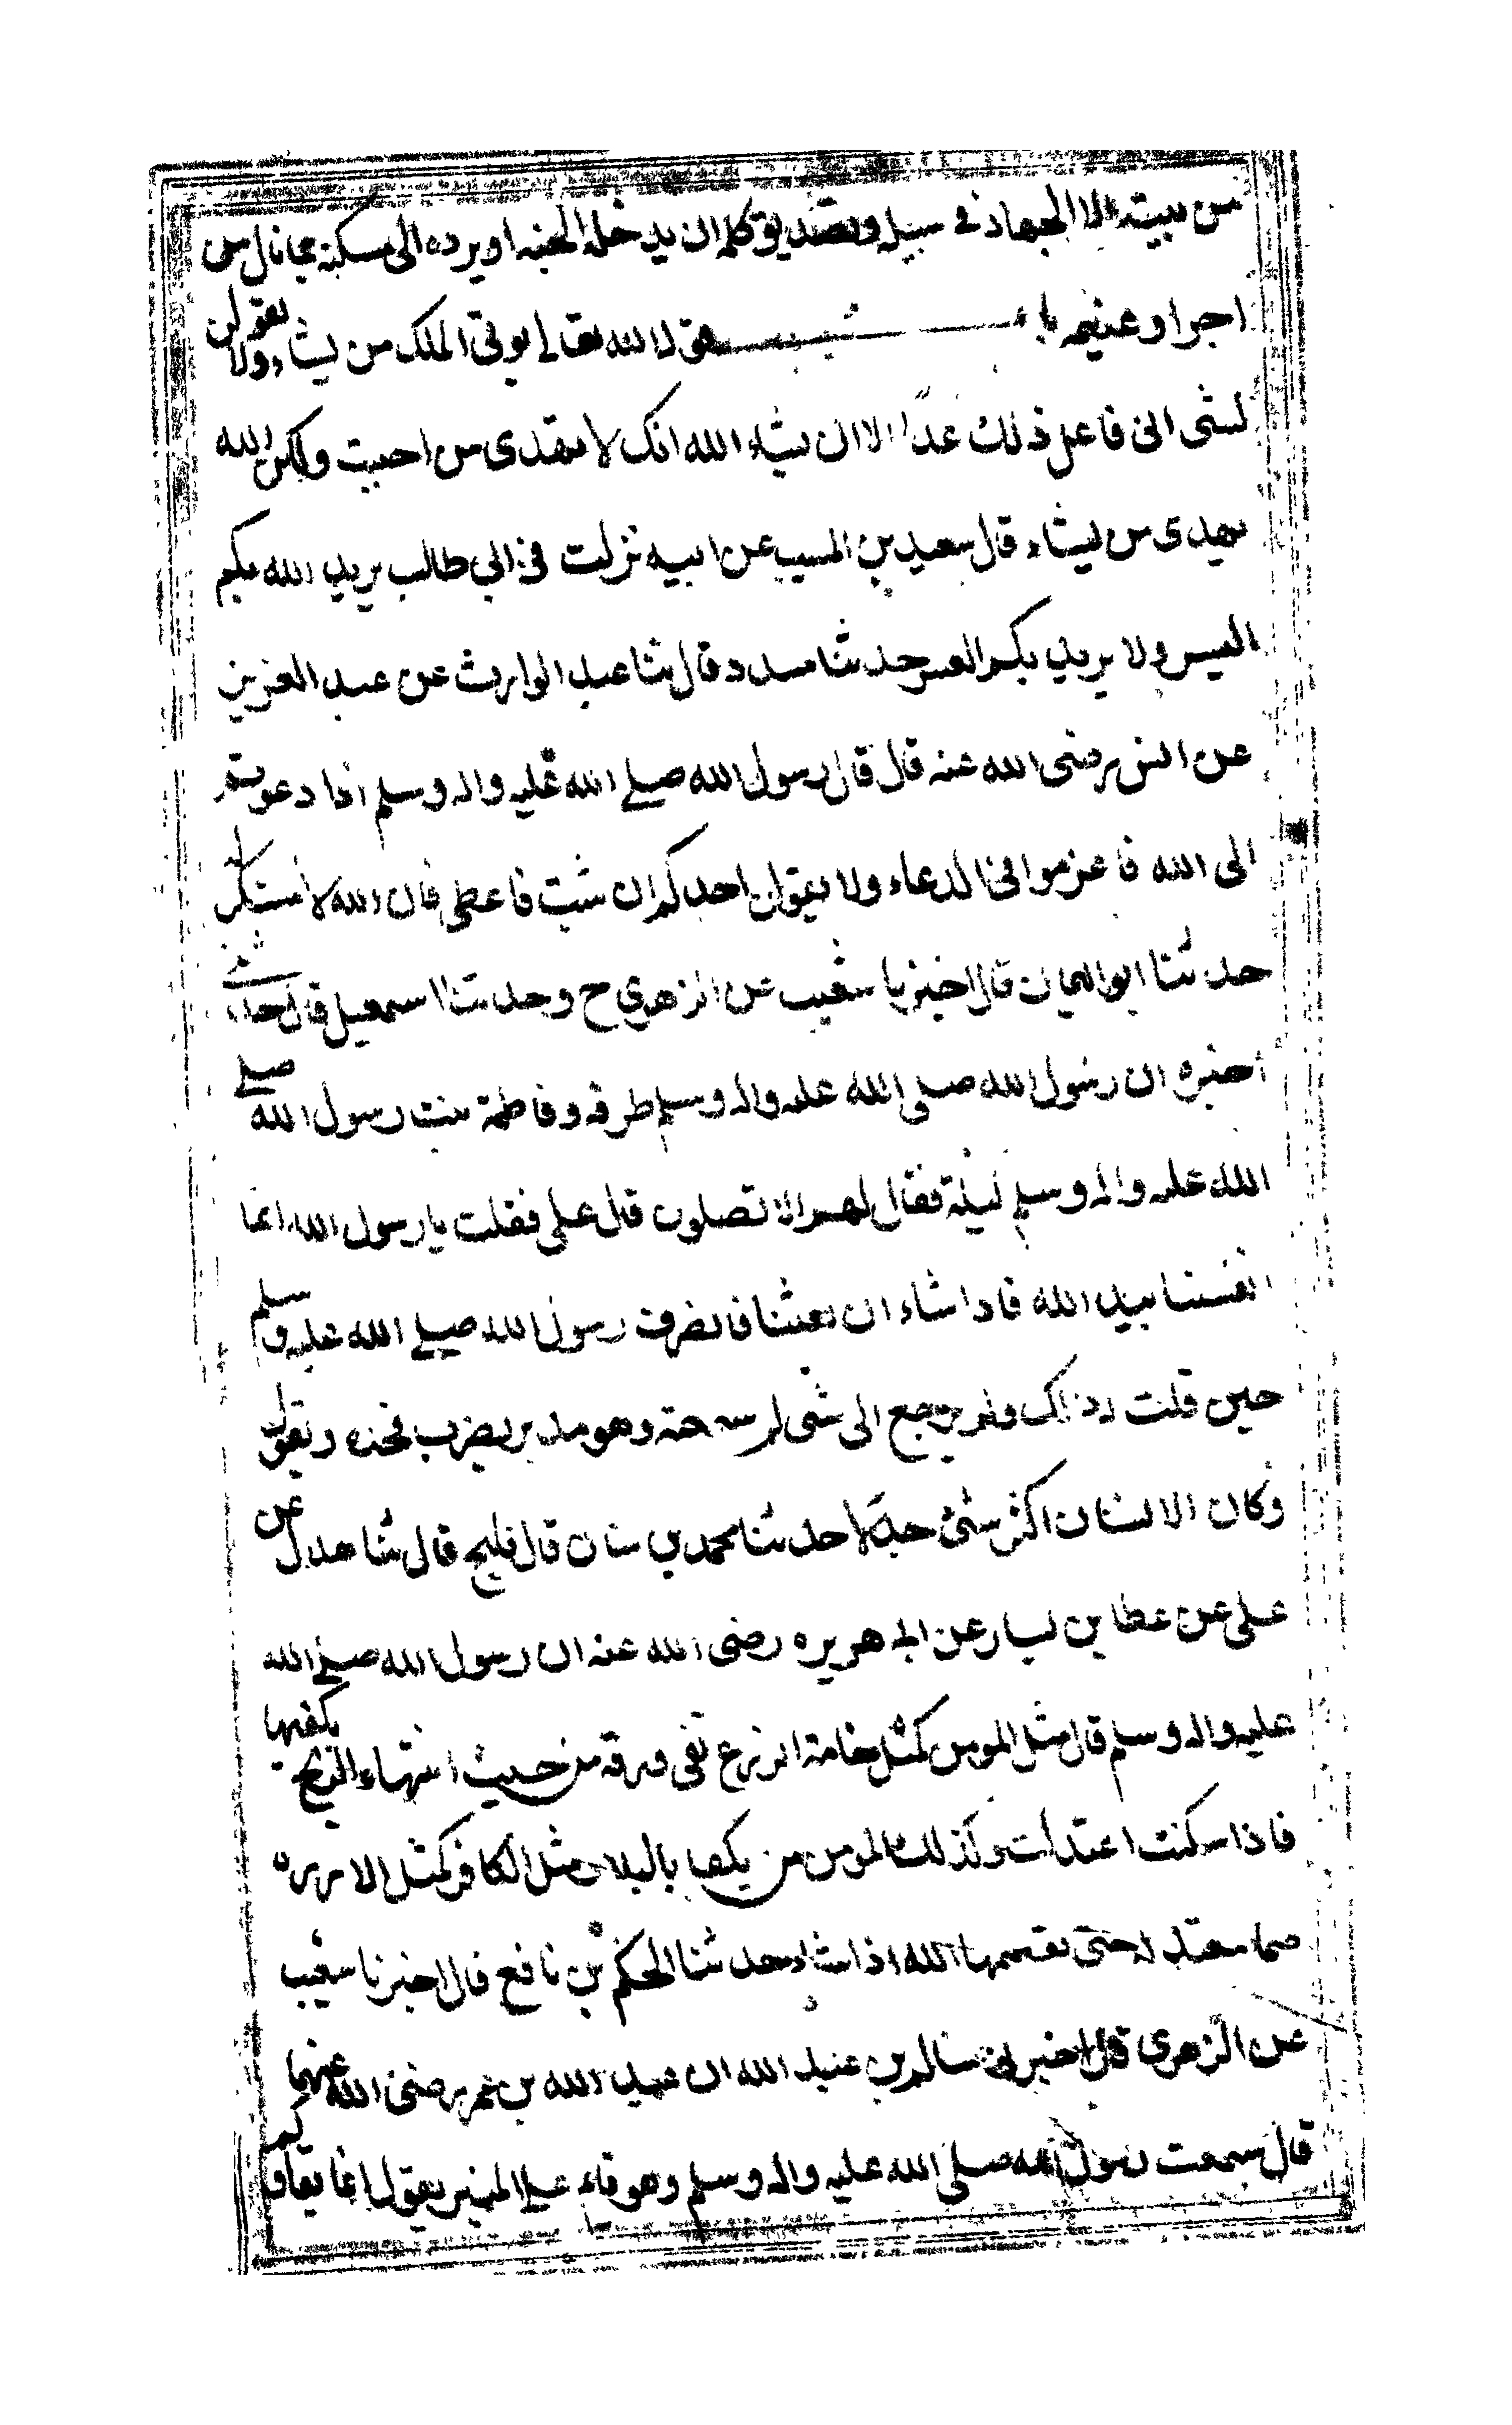 من بيته الا الجهاد في سبيله وتصديق كلمه ان يدخله الجنه او يرده الى مسكنه بما نال من
اجر او غنيمه باب قول الله تعالى يوتى الملك من يشاء ولا تقولن
لشى انى فاعل ذلك غدا الا ان يشاء الله انك لا تهدى من احببت ولكن الله
يهدى من يشاء قال سعيد بن المسيب عن ابيه نزلت فى ابى طالب يريد الله بكم
اليسر ولا يريد بكم العسر حدثنا مسدد قال ثنا عبد الوارث عن عبد العزيز
عن انس رضى الله عنه قال قال رسول الله صلى الله عليه واله وسلم اذا دعوتم
الى الله فاعزموا فى الدعاء ولا يقولن احدكم ان شئت فاعطنى فان الله لا مستكره له
حدثنا ابو اليمان قال اخبرنا شعيب عن الزهري ح وحدثنا اسمعيل قال حدثنى
اخبره ان رسول الله صلى الله عليه واله وسلم طرقه وفاطمة بنت رسول الله صلى
الله عليه واله وسلم ليلة فقال لهم الا تصلون قال على فقلت يا رسول الله انما
انفسنا بيد الله فاذا شاء ان يبعثنا فانصرف رسول الله صلى الله عليه وسلم
حين قلت ذلك ولم يرجع الى شى ثم سمعته وهو مدبر يضرب فخذه ويقول
وكان الانسان اكثر شىء جدلا حدثنا محمد بن سنان قال فليح قال ثنا هلال عن
على عن عطا بن يسار عن ابى هريره رضى الله عنه ان رسول الله صلى الله
عليه واله وسلم قال مثل المومن كمثل خامة الزرع تفى ورقه من حيث انتهاء الريح يكفيها
فاذا سكنت اعتدلت وكذلك المومن من يكفا بالبلاء ومثل الكافر كمثل الارزه
صما معتدله حتى يقصمها الله اذا شاء حدثنا الحكم بن نافع قال اخبرنا شعيب
عن الزهرى قال اخبرنى سالم بن عبد الله ان عبد الله بن عمر رضى الله عنهما
قال سمعت رسول الله صلى الله عليه واله وسلم وهو قائم على المنبر يقول انما بقاوكم